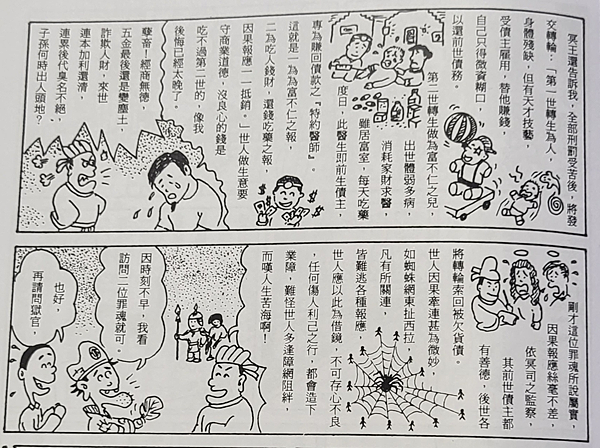 冥王還告訴我，全部刑罰受苦後，將發
交轉輪：「第一世轉生為人，
身體殘缺，但有天才技藝，
受債主雇用，替他賺錢，
自己只得微資餬口，
以還前世債務。
第二世轉生做為富不仁之兒，
出世體弱多病，
消耗家財求醫，
雖居富室，每天吃藥
度日，此醫生即前生債主，
專為賺回債款之『特約醫師』。
這就是一為為富不仁之報，
二為吃人錢財，還錢吃藥之報，
因果報應一一抵銷。」世人做生意要
守商業道德，沒良心的錢是
吃不過第二世的，像我
後悔已經太晚了。
孽畜！經商無德，
五金最後還是變塵土，
詐欺人財，來世
連本加利還清，
連累後代臭名不絕，
子孫何時出人頭地？
剛才這位罪魂所說屬實，
因果報應絲毫不差，
依冥司之監察，
其前世債主都
有善德，後世各
將轉輪索回被欠貨債。
世人因果牽連甚為微妙，
如蜘蛛網東扯西拉，
凡有所關連，
皆難逃各種報應，
世人應以此為借鏡，不可存心不良
，任何傷人利己之行，都會造下
業障，難怪世人多逢障網阻絆，
而嘆人生苦海啊！
因時刻不早，我看
訪問二位罪魂就可。
也好，
再請問獄官，